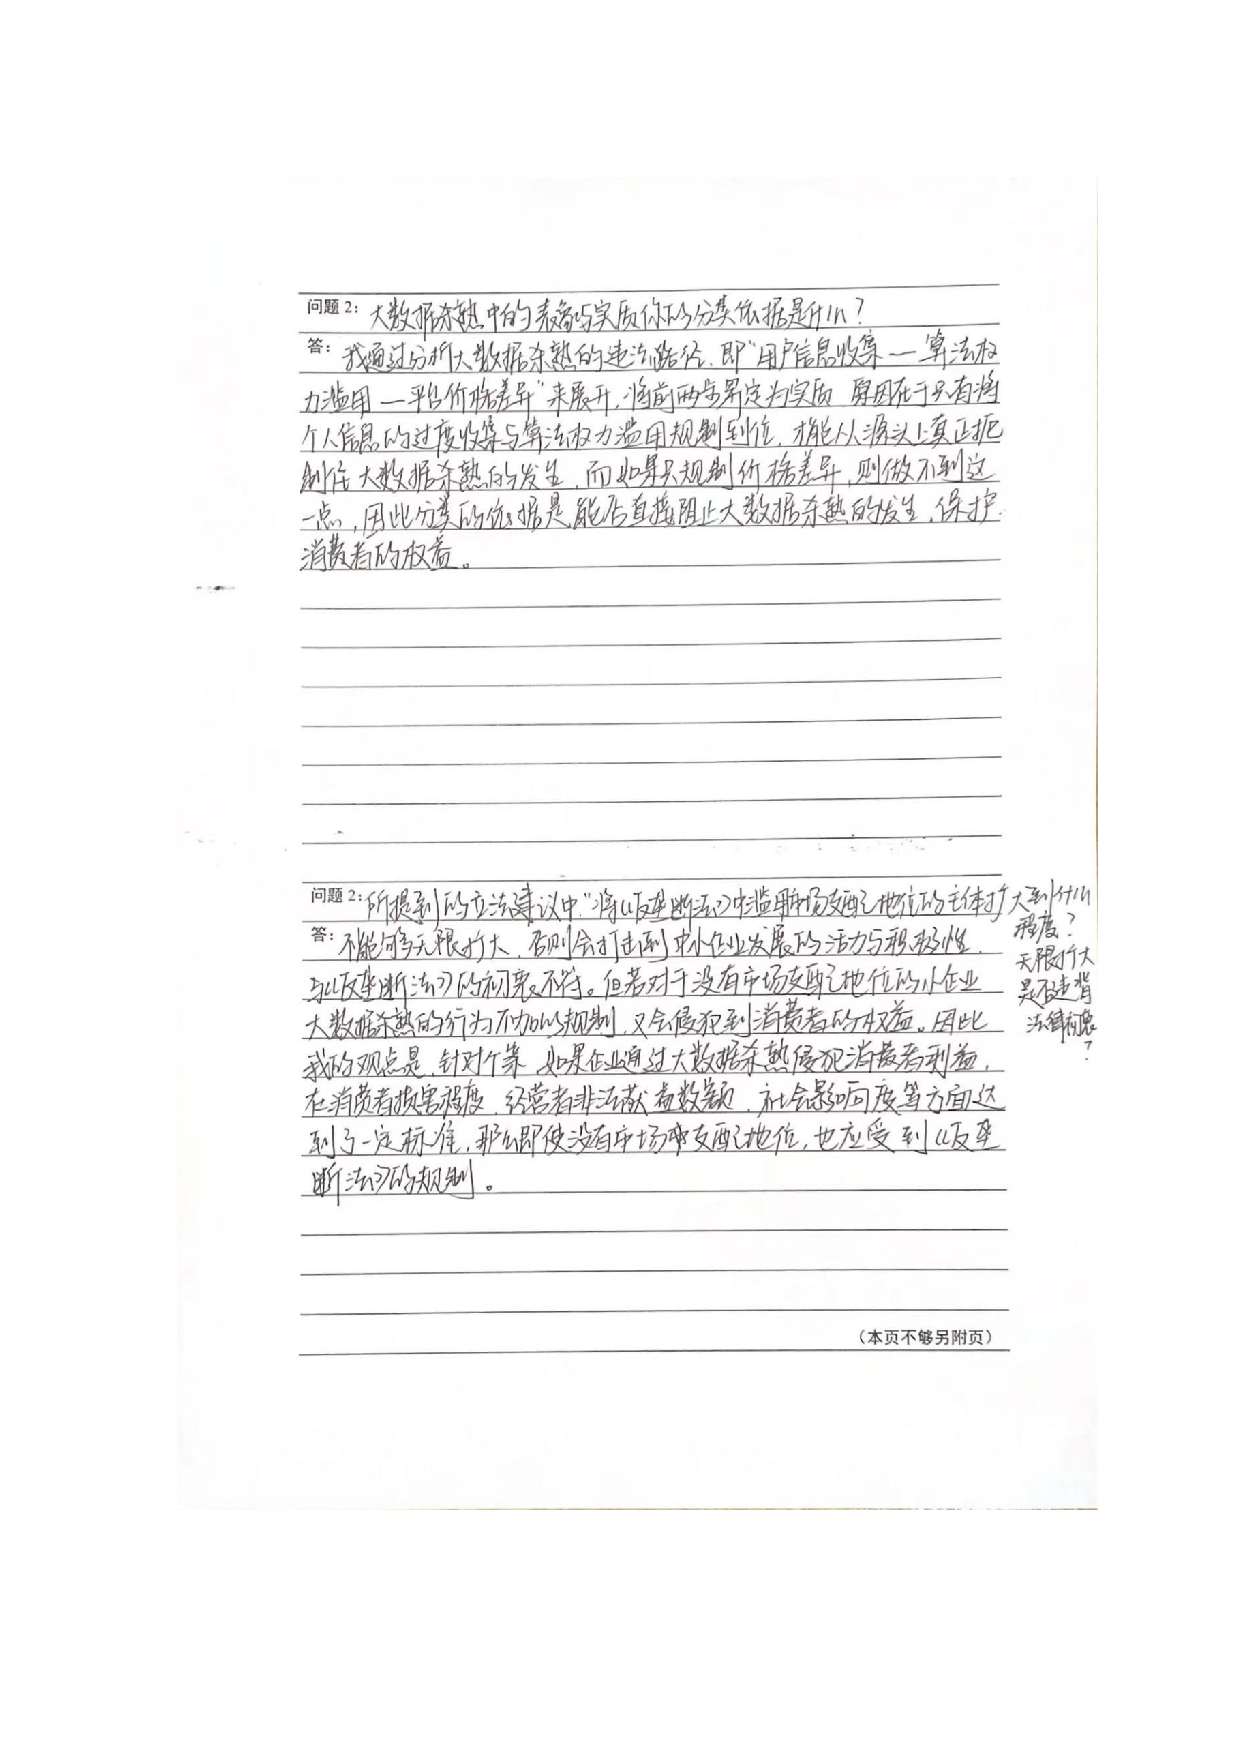 问题2：大数据杀熟中的表象与实质你的分类依据是什么？
答：我通过分析大数据杀熟的违法路径，即“用户信息收集—算法权
力滥用—平台价格差异”来展开，将前两步界定为实质，原因在于只有将
个人信息的过度收集与算法权力滥用规制到位，才能从源头上真正扼
制住大数据杀熟的发生，而如果只规制价格差异，则做不到这
一点，因此分类的依据是能否直接阻止大数据杀熟的发生，保护
消费者的权益。
问题2：所提到的立法建议中“将《反垄断法》中滥用市场支配地位的主体扩大到什么
程度？
无限扩大
是否违背
法律初衷
？
答：不能够无限扩大，否则会打击到中小企业发展的活力与积极性，
与《反垄断法》的初衷不符。但若对于没有市场支配地位的小企业
大数据杀熟的行为不加以规制，又会侵犯到消费者的权益。因此
我的观点是，针对个案，如果企业通过大数据杀熟侵犯消费者利益，
在消费者损害程度、经营者非法获益数额、社会影响度等方面达
到了一定标准，那么即使没有市场支配地位，也应受到《反垄
断法》的规制。
（本页不够另附页）